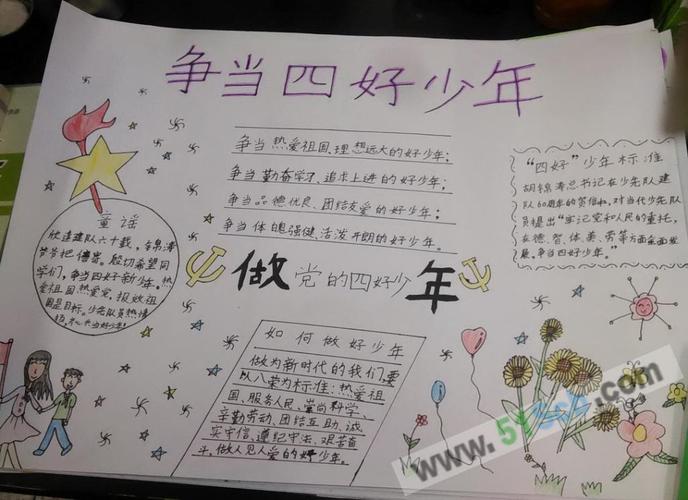 争当四好少年
争当热爱祖国、理想远大的好少年;
争当勤奋学习、追求上进的好少年;
争当品德优良、团结友爱的好少年;
争当体魄强健、活泼开朗的好少年。
"四好"少年标准
胡锦涛总书记在少先队建
队60周年的贺信和,对当代少先队
员提出"牢记党和人民的重托,
在德、智、体、美、劳等方面全面发
展,争当四好少年。
童谣
欣逢建队六十载,
爷爷把信寄。殷切希望同
学们,争当四好新少年。热
爱祖国热爱党,报效祖
国是目标。少先队员热情
做党的四好少年
如何做好少年
做为新时代的我们,要
以八荣为标准:热爱祖
国、服务人民、崇尚科学、
辛勤劳动、团结互助、诚
实守信、遵纪守法、艰苦奋
斗。做人见人爱的好少年。